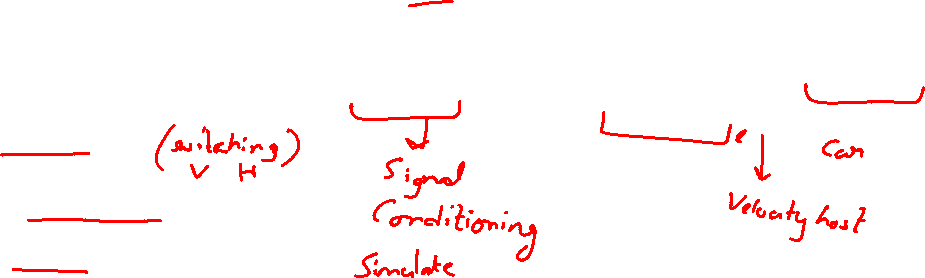 (switching)
V H
Signal
Conditioning
Simulate
e
Velocity host
Can